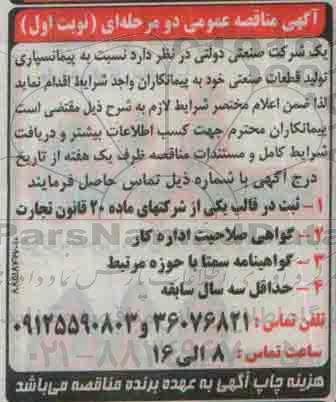 آگهی مناقصه عمومی دو مرحله‌ای (نوبت اول)
یک شرکت صنعتی دولتی در نظر دارد نسبت به پیمانسپاری
تولید قطعات صنعتی خود به پیمانکاران واجد شرایط اقدام نماید
لذا ضمن اعلام مختصر شرایط لازم به شرح ذیل مقتضی است
پیمانکاران محترم جهت کسب اطلاعات بیشتر و دریافت
شرایط کامل و مستندات مناقصه ظرف یک هفته از تاریخ
درج آگهی با شماره ذیل تماس حاصل فرمایند
۱- ثبت در قالب یکی از شرکتهای ماده ۲۰ قانون تجارت
۲- گواهی صلاحیت اداره کار
۳- گواهینامه سمتا با حوزه مرتبط
۴- حداقل سه سال سابقه
تلفن تماس: ۳۶۰۷۶۸۲۱ و ۰۹۱۲۵۵۹۰۸۰۳
ساعت تماس: ۸ الی ۱۶
هزینه چاپ آگهی به عهده برنده مناقصه می‌باشد